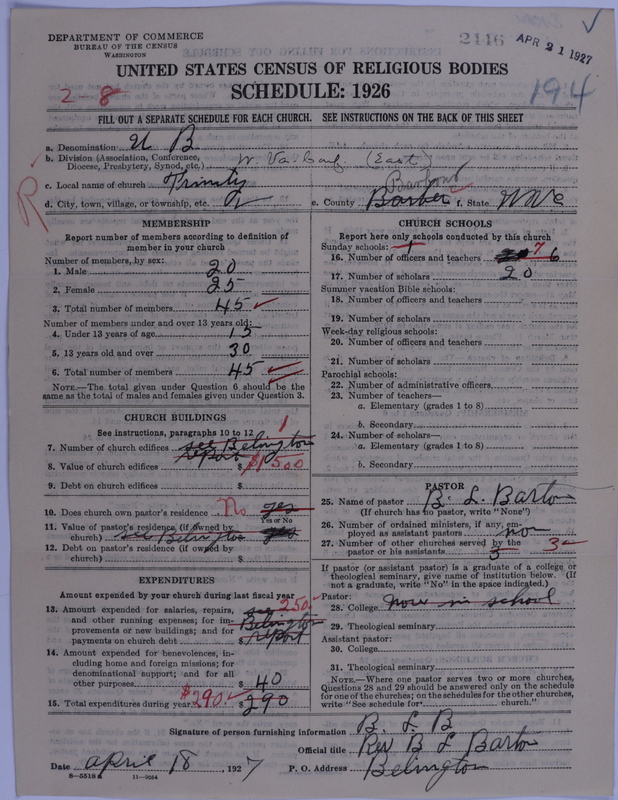 DEPARTMENT OF COMMERCE
BUREAU OF THE CENSUS
WASHINGTON
2116
APR 21 1927
UNITED STATES CENSUS OF RELIGIOUS BODIES
SCHEDULE: 1926
2-8
194
FILL OUT A SEPARATE SCHEDULE FOR EACH CHURCH. SEE INSTRUCTIONS ON THE BACK OF THIS SHEET
a. Denomination U B
b. Division (Association, Conference, Diocese, Presbytery, Synod, etc.) W. Va. Conf (East)
c. Local name of church Trinity
R
d. City, town, village, or township, etc.
Barbour
e. County Barber f. State W Va
MEMBERSHIP
Report number of members according to definition of
member in your church
Number of members, by sex:
1. Male 20
2. Female 25
3. Total number of members 45
Number of members under and over 13 years old:
4. Under 13 years of age 15
5. 13 years old and over 30
6. Total number of members 45
NOTE.—The total given under Question 6 should be the
same as the total of males and females given under Question 3.
CHURCH BUILDINGS
See instructions, paragraphs 10 to 12
7. Number of church edifices see Belington 1
report
8. Value of church edifices $ $1500
9. Debt on church edifices $
10. Does church own pastor's residence No yes
Yes or No
11. Value of pastor's residence (if owned by
church) see Belington $
12. Debt on pastor's residence (if owned by
church) $
EXPENDITURES
Amount expended by your church during last fiscal year
13. Amount expended for salaries, repairs, see 250.
and other running expenses; for im- Belington
provements or new buildings; and for report
payments on church debt $
14. Amount expended for benevolences, in-
cluding home and foreign missions; for
denominational support; and for all
other purposes $ 40
15. Total expenditures during year $290. $ 290
CHURCH SCHOOLS
Report here only schools conducted by this church
Sunday schools: 1
16. Number of officers and teachers 7 6
17. Number of scholars 20
Summer vacation Bible schools:
18. Number of officers and teachers
19. Number of scholars
Week-day religious schools:
20. Number of officers and teachers
21. Number of scholars
Parochial schools:
22. Number of administrative officers
23. Number of teachers—
a. Elementary (grades 1 to 8)
b. Secondary
24. Number of scholars—
a. Elementary (grades 1 to 8)
b. Secondary
PASTOR
25. Name of pastor B. L. Barton
(If church has no pastor, write "None")
26. Number of ordained ministers, if any, em-
ployed as assistant pastors no
27. Number of other churches served by the
pastor or his assistants 3 3
If pastor (or assistant pastor) is a graduate of a college or
theological seminary, give name of institution below. (If
not a graduate, write "No" in the space indicated.)
Pastor:
28. College now in school
29. Theological seminary
Assistant pastor:
30. College
31. Theological seminary
NOTE.—Where one pastor serves two or more churches,
Questions 28 and 29 should be answered only on the schedule
for one of the churches; on the schedules for the other churches,
write "See schedule for church."
Signature of person furnishing information B. L. B
Official title Rev B L Barton
Date April 18, 1927 P. O. Address Belington
8—5518 a 11—9264